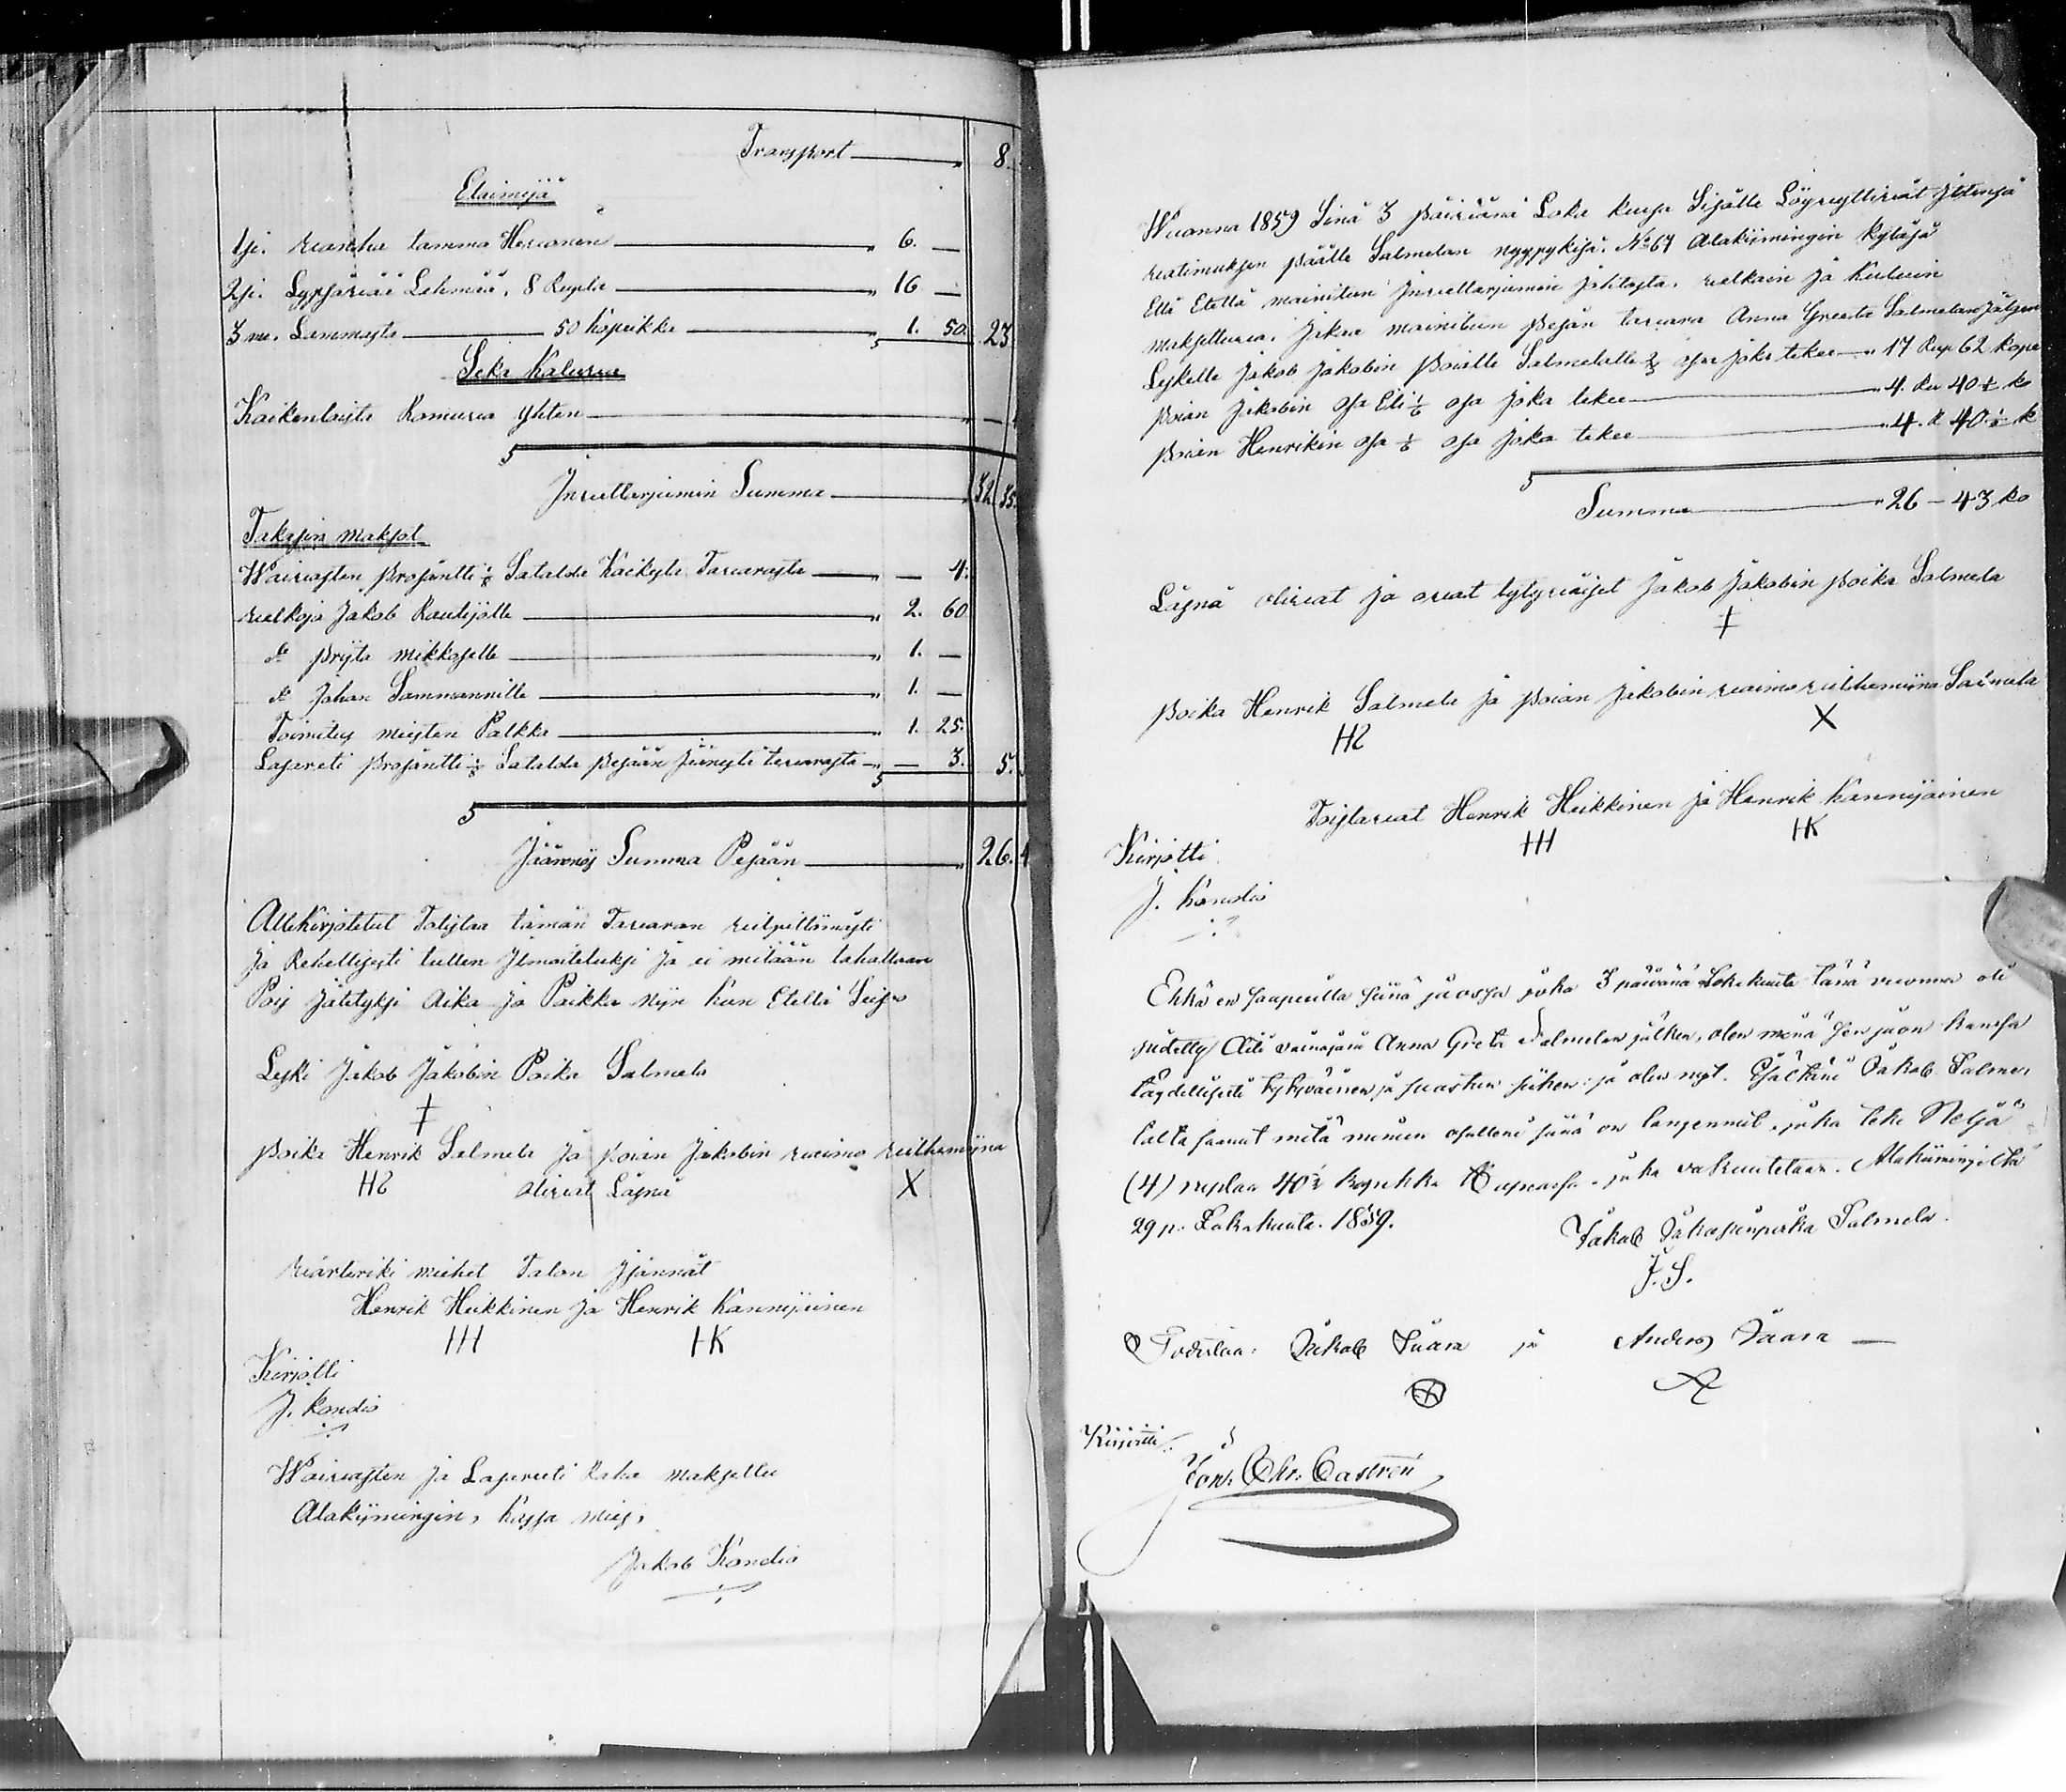 Transport — " 8.
Elaimijä
1si. vanha tamma Hevonen — " 6. —
2si. Lypsäviää Lehmää, 8 Rupla — " 16 —
3 me. Lammasta — 50 kopeikka — " 1. 50. 23
Seka Kaluva
Kaikenlaista Romuva yhten — " —
S
Inventarjumin Summa — " 32 35.
Takasin maksot
Waivasten prosäntti 1/8 Satalda Kaikesta Tavarasta — " — 4.
velkoja Jakob Rautijolle — " 2. 60.
do prijta mikkoselle — " 1. —
do Johan Sammannille — " 1. —
Toimitus miesten Palkka — " 1. 25.
Lasareti prosäntti 1/8 Satalda pesään jäänestä tavarasta — " — 3. 5.
S
Jäännös Summa Pesään — " 26. 4
Allekirjotetut Tolistaa tämän Tavaran vilpittömästi
Ja Rehellisesti tullen Ilmoitetuksi ja ei mitään tahallaan
Pois jätetyksi Aika ja Paikka nijn kun Etellä Seiso
Leski Jakob Jakobin Poika Salmela
‡
poika Henrik Salmela ja poian Jakobin vaimo vilhemijna
HS olivat Läsnä X
värteriki miehet Talon Isännät
Henrik Heikkinen ja Henrik Kannijainen
HH HK
Kirjotti
J. Kondio
Waivasten ja Lasareeti Raha maksettu
Alakijmingin, Kassa mies,
Jakob Kondio
Wuonna 1859 Sinä 3 päivänä Loka kusa Sijälle Löyvyttivät Ittensä
vatimuksen päälle Salmelan nyypykisä. No 67 Alakijmingin Kyläsä
Että Etellä mainitun Inventarjumin johtosta. velkain ja Kuluin
maksettuva. Jakaa mainitun pesän tavara Anna Greeta Salmelan Jälgen
Leskelle Jakob Jakobin poialle Salmelalle 2/3 osa joka tekee — " 17 Rup 62 kope
poian Jakobin osa Eli 1/6 osa joka tekee — " 4. Ru 40 1/2 ko
poian Henrikin osa 1/6 osa joka tekee — " 4. R 40 1/2 k
S
Summa — " 26 — 43 ko
Läsnä olivat ja ovat tytyväiset Jakob Jakobin poika Salmela
‡
poika Henrik Salmela ja poian Jakobin vaimo vilhemiina Salmela
HS X
Toistavat Henrik Heikkinen ja Henrik Kannijainen
HH HK
Kirjotti
J. Kondio
Ehkä en saapuilla siinä jaossa joka 3 päiwänä Lokakuuta tänä vuonna oli
pidetty Äiti vainajani Anna Greta Salmelan jälken, olen minä sen jaon kanssa
täydellisesti tytyväinen ja suostun siihen: ja olen nyt Isältäni Jakob Salme-
lalta saanut mitä minun osalleni siinä on langennut, joka teki Neljä
(4) ruplaa 40 1/2 kopekka Hopeassa, joka vakuutetaan. Alakiimingiltä
29 p: Lokakuuta. 1859.
Jakob Jakobinpoika Salmela.
J. S.
Todistaa: Jakob Juara ja Anders Juara —
Kirjoitti:
Jon: Chr: Castrén